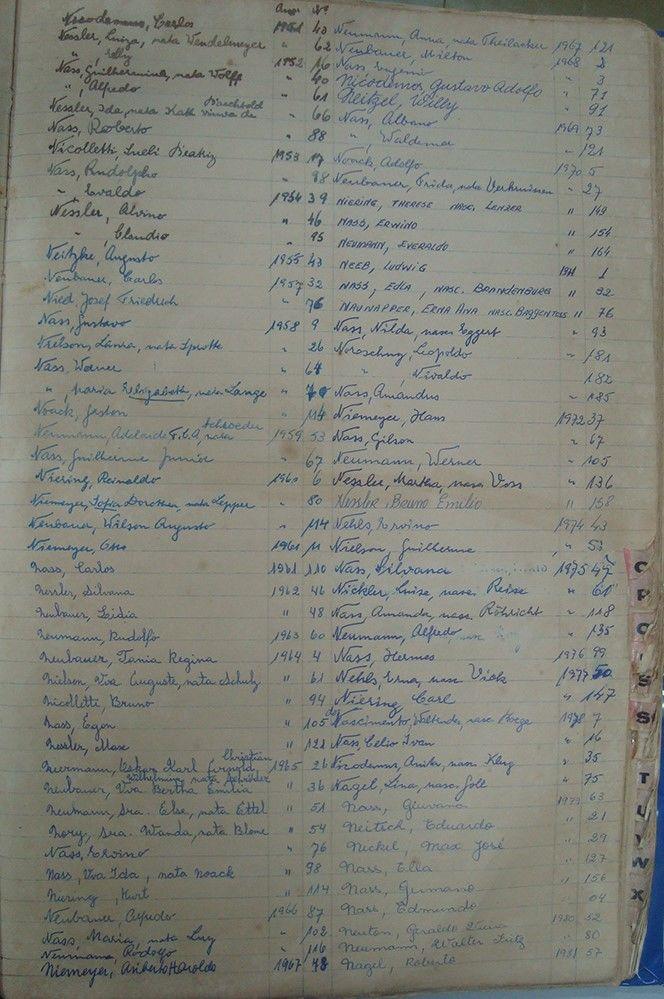 Ano Nº
Nicodemus, Carlos 1951 40
Nessler, Luiza, nata Wendelmeyer " 62
" Elly 1952 16
Nass, Guilhermina, nata Wolff " 40
" , Alfredo " 61
Nessler, Ida, nata Rath viuva de " 66
Nass, Roberto " 88
Nicolletti, Sueli Beatriz 1953 17
Nass, Rudolpho " 98
" Ewaldo 1954 39
Nessler, Alvino " 46
" , Claudio " 95
Neitzke, Augusto 1955 43
Neubauer, Carlos 1957 32
Nied, Josef Friedrich " 76
Nass, Gustavo 1958 9
Nielson, Laura, nata Sprotte " 26
Nass, Werner " 64
" , Maria Elisabeth, nata Lange " 70
Noack, Gaston " 114
Neumann, Adelaide F.C.A, nata Schroeder 1959 53
Nass, Guilherme Junior " 67
Niering, Reinaldo 1960 6
Niemeyer, Sofia Dorothea, nata Lepper " 80
Neubauer, Wilson Augusto " 114
Niemeyer, Otto 1961 11
Nass, Carlos 1961 110
Nessler, Silvana 1962 46
Neubauer, Lidia " 48
Neumann, Rudolfo 1963 60
Neubauer, Tania Regina 1964 4
Nielson, Vva Auguste, nata Schulz " 61
Nicolletti, Bruno " 94
Nass, Egon " 105
Nessler, Max " 121
Neermann, Oskar Karl Christian 1965 26
Neubauer, Vva Bertha Emilia Wilhelmine nata Schröder " 36
Neumann, Sra. Else, nata Ettel " 51
Nory, sra. Wanda, nata Blone " 54
Nass, Ervino " 76
Nass, Vva Ida, nata Noack " 98
Niering, Kurt " 114
Neubauer, Alfredo 1966 87
Nass, Maria, nata Luy " 102
Neumann, Rodolfo " 116
Niemeyer, Ariberto Haroldo 1967 48
Neumann, Anna, nata Theilacker 1967 121
Neubauer, Milton 1968 2
Nass, Eugenio " 3
Nicodemos, Gustavo Adolfo " 71
Neitzel, Willy " 91
Nass, Albano 1969 73
" , Waldemar " 121
Noack, Adolfo 1970 5
Neubauer, Frida, nata Verkruissen " 27
NIERING, THERESE NASC. LENZER " 149
NASS, ERWINO " 154
NEUMANN, EVERALDO " 164
NEEB, LUDWIG 1971 1
NASS, EDLA, NASC. BRANDENBURG " 32
NAUNAPPER, ERNA ANA NASC. BAGGENTOSS " 76
Nass, Nilda, nasc. Eggert " 93
Noroschny, Leopoldo " 181
" , Nivaldo 182
Nass, Amandus " 185
Niemeyer, Hans 1972 37
Nass, Gilson " 67
Neumann, Werner " 105
Nessler, Martha, nasc. Voss " 136
Nessler, Bruno Emilio " 158
Nehls, Ervino 1974 43
Nielson, Guilherme " 53
Nass, Silvana 1975 47
Nickler, Luise, nasc. Reise " 61
Nass, Amanda, nasc. Röhricht " 118
Neumann, Alfredo " 135
Nass, Hermes 1976 99
Nehls, Erna, nasc. Vick 1977 50
Niering, Carl " 147
do Nascimento, Waltrudes, nasc. Hoege 1978 7
Nass, Celio Ivan " 16
Nicodemus, Anita, nasc. Klug " 35
Nagel, Lina, nasc. Joll " 75
Nass, Giovana 1979 63
Neitsch, Eduardo " 21
Nickel, Max José " 29
Nass, Ella " 127
Nass, Germano " 156
Nass, Edmundo " 04
Newton, Geraldo 1980 52
Neumann, Walter Fritz " 80
Nagel, Roberto 1981 57
O
P
S
S
T
U
W
X